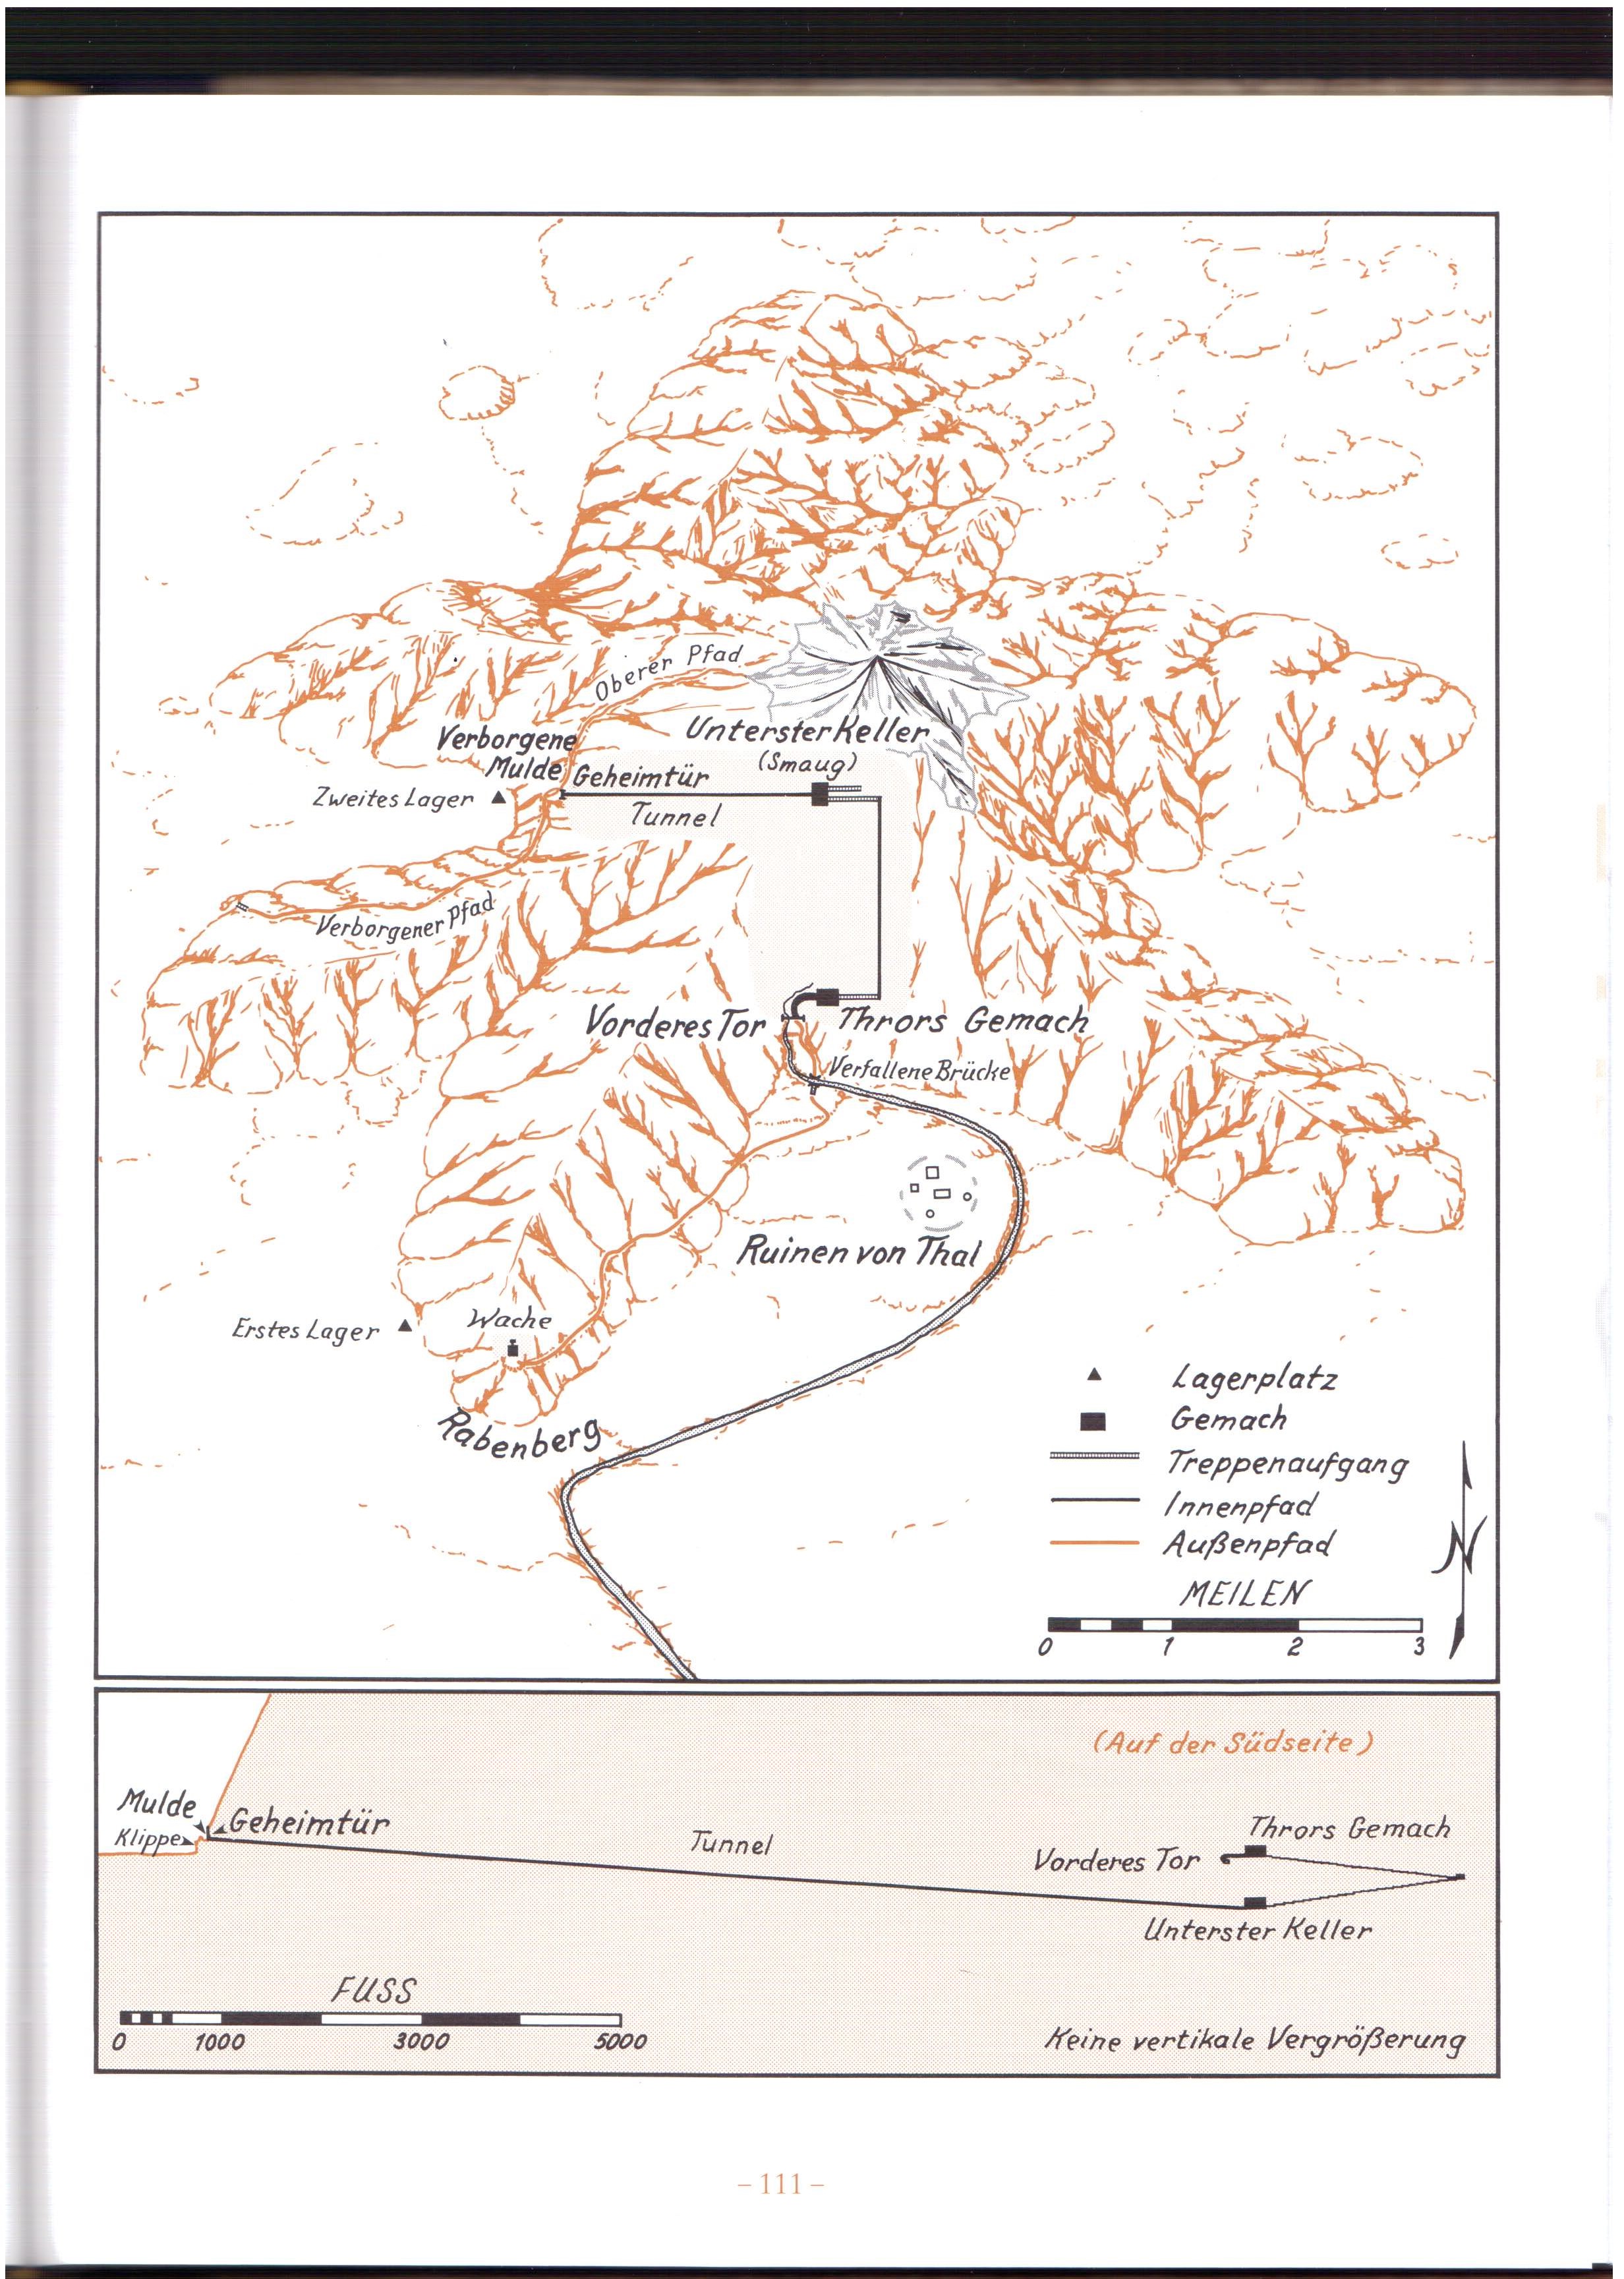 Oberer Pfad
Verborgene
Mulde
Unterster Keller
(Smaug)
Geheimtür
Zweites Lager
Tunnel
Verborgener Pfad
Vorderes Tor
Thrors Gemach
Verfallene Brücke
Ruinen von Thal
Erstes Lager
Wache
Rabenberg
Lagerplatz
Gemach
Treppenaufgang
Innenpfad
Außenpfad
N
MEILEN
0 1 2 3
(Auf der Südseite)
Mulde
Klippe
Geheimtür
Tunnel
Thrors Gemach
Vorderes Tor
Unterster Keller
FUSS
0 1000 3000 5000
Keine vertikale Vergrößerung
– 111 –